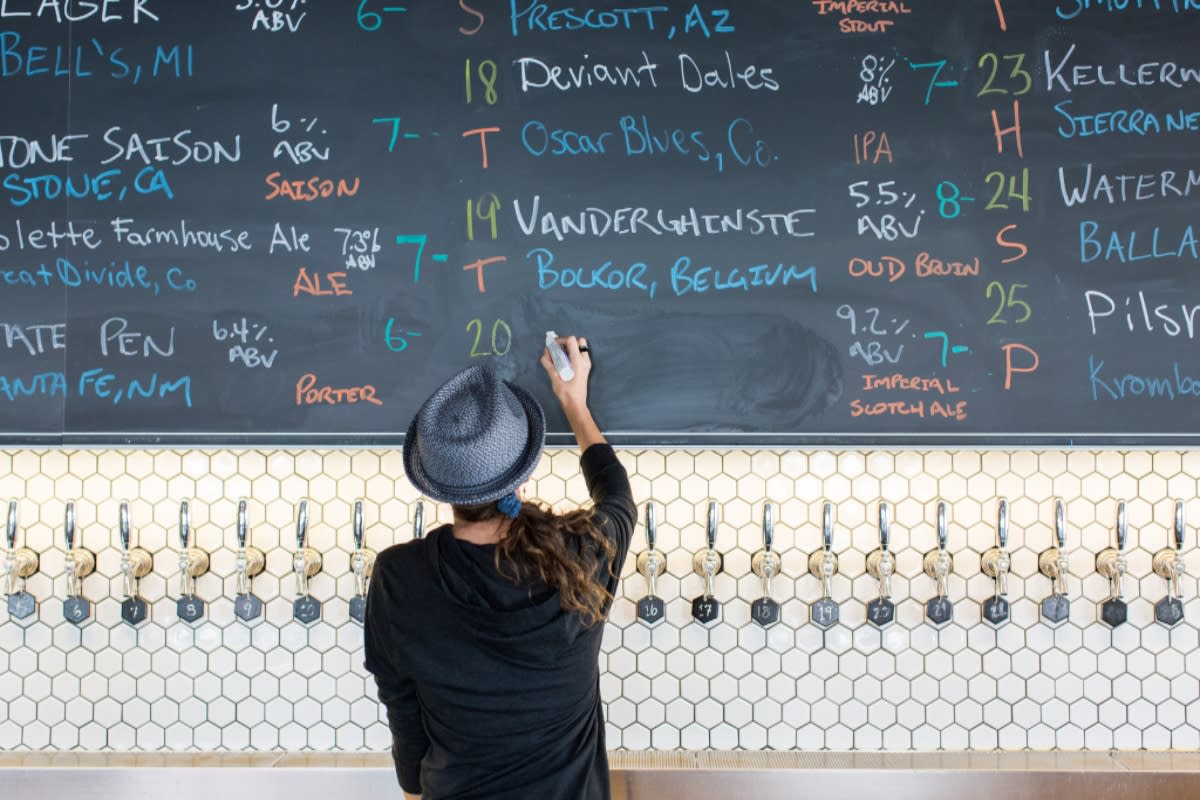 LAGER
ABV
6-
BELL'S, MI
TONE SAISON
6%
ABV
7-
STONE, CA
SAISON
olette Farmhouse Ale
7.3%
ABV
7-
reat Divide, Co
ALE
TATE PEN
6.4%
ABV
6-
ANTA FE, NM
PORTER
S
PRESCOTT, AZ
IMPERIAL
STOUT
18
Deviant Dales
8%
ABV
7-
T
Oscar Blues, Co.
IPA
19
VANDERGHINSTE
5.5%
ABV
8-
T
BOLKOR, BELGIUM
OUD BRUIN
20
9.2%
ABV
7-
IMPERIAL
SCOTCH ALE
23
KELLERW
H
SIERRA NE
24
WATERM
S
BALLA
25
Pilsn
P
Kromba
8
9
16
17
18
19
20
21